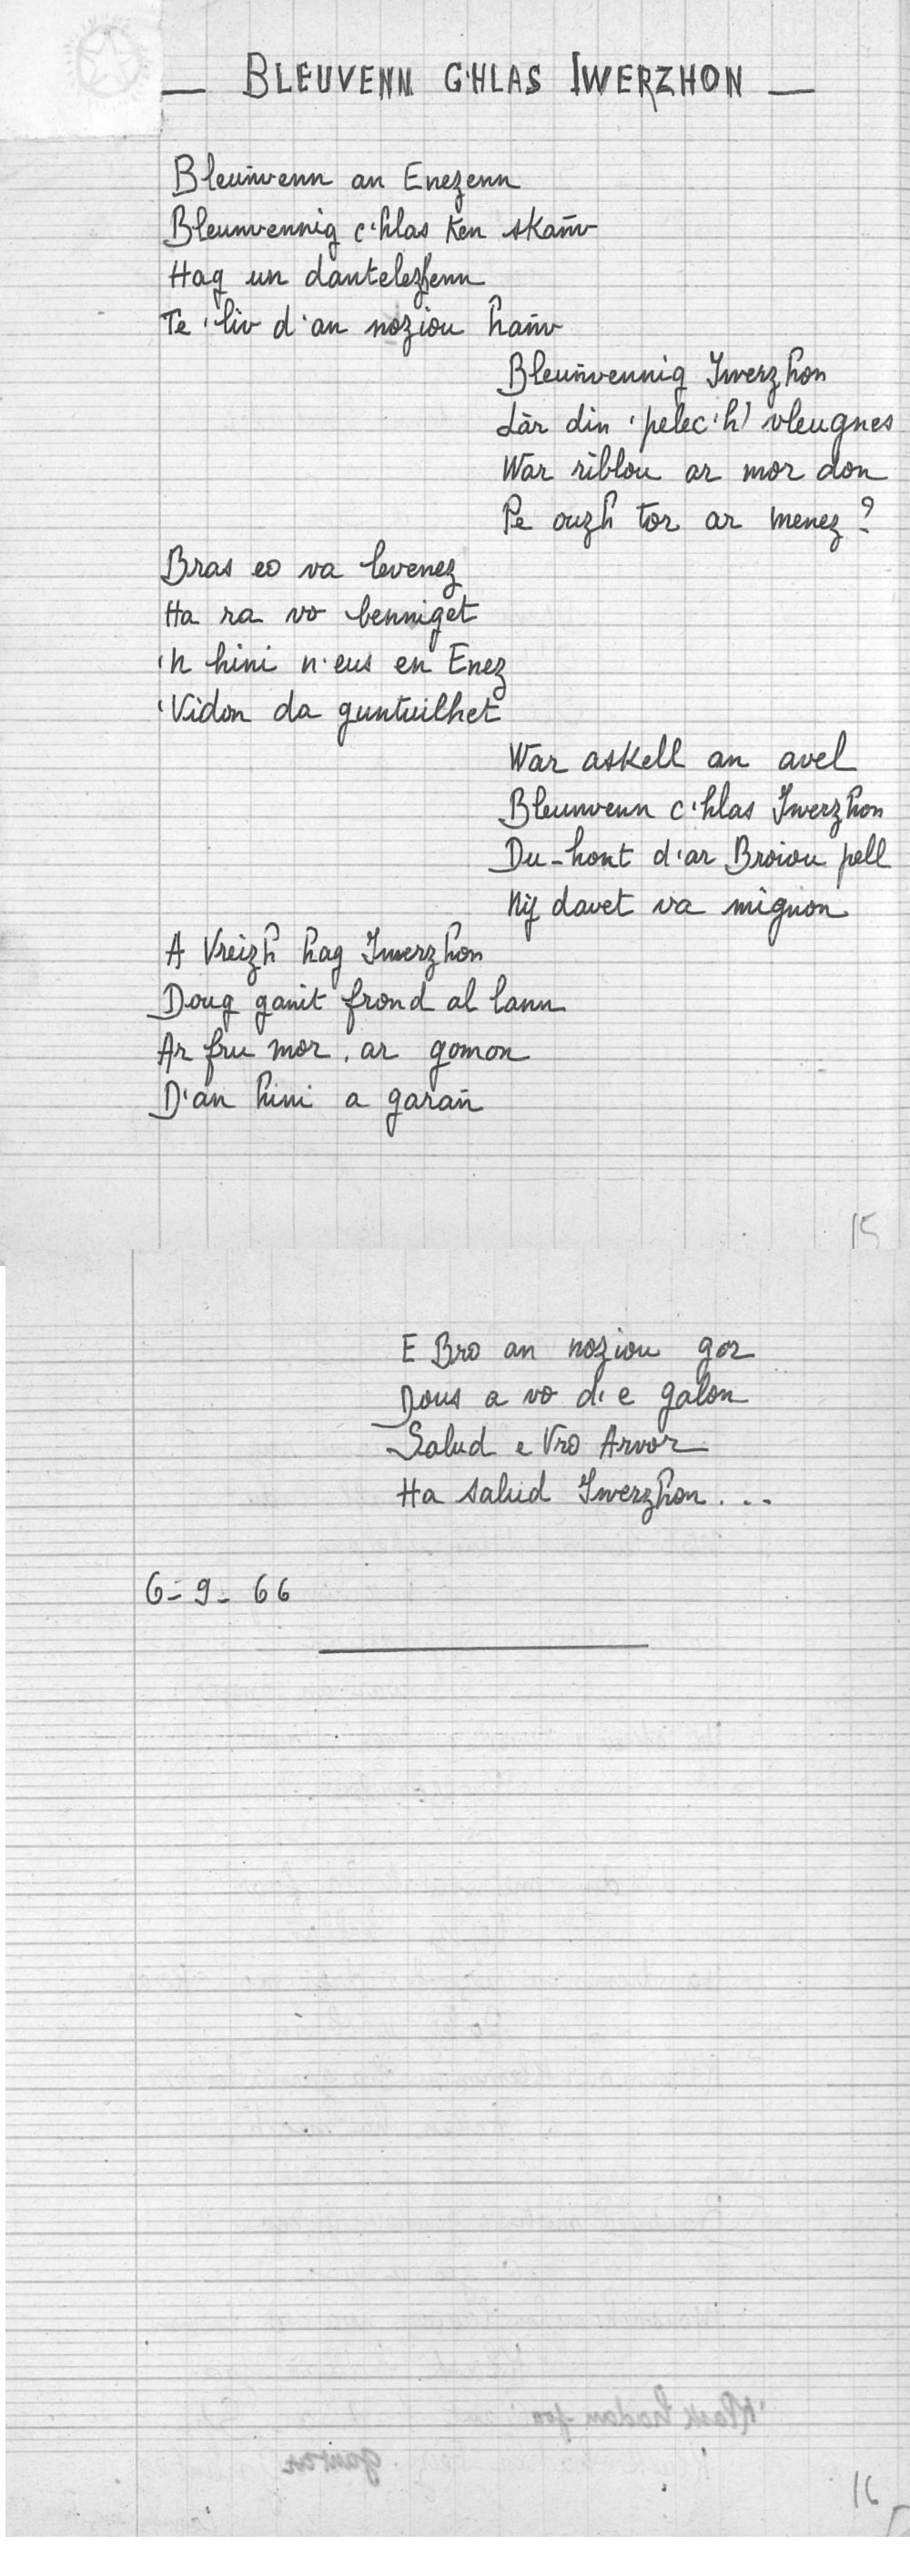 — BLEUVENN G'HLAS IWERZHON —
Bleuñvenn an Enezenn
Bleunvennig c'hlas ken skañv
Hag un dantelezhenn
Te 'liv d'an noziou hañv
Bleuñvennig Iwerzhon
Làr din 'pelec'h' vleugnes
War riblou ar mor don
Pe ouzh tor ar menez ?
Bras eo va levenez
Ha ra vo benniget
'n hini n'eus en Enez
'Vidon da guntuilhet
War askell an avel
Bleunvenn c'hlas Iwerzhon
Du-hont d'ar Broiou pell
Nij davet va mignon
A Vreizh hag Iwerzhon
Doug ganit frond al lann
Ar fru mor, ar gomon
D'an hini a garañ
15
E Bro an noziou gor
Dous a vo d'e galon
Salud e Vro Arvor
Ha salud Iwerzhon...
6-9-66
16